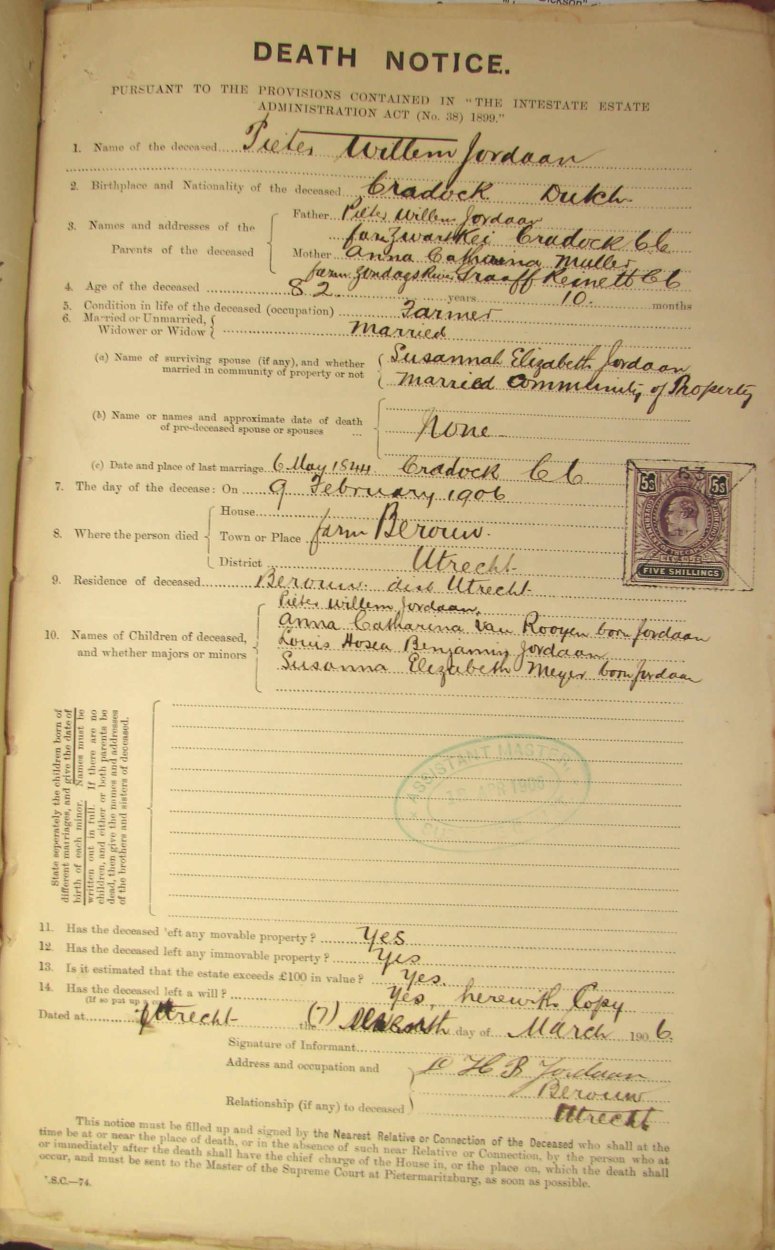 DEATH NOTICE.
PURSUANT TO THE PROVISIONS CONTAINED IN "THE INTESTATE ESTATE
ADMINISTRATION ACT (No. 38) 1899."
1. Name of the deceased Pieter Willem Jordaan
2. Birthplace and Nationality of the deceased Cradock Dutch
3. Names and addresses of the Parents of the deceased
Father Pieter Willem Jordaan
farm Zwartkei Cradock CC
Mother Anna Catharina Muller
farm Zondags River Graaff Reinett CC
4. Age of the deceased 82 years 10. months
5. Condition in life of the deceased (occupation) Farmer
6. Married or Unmarried, Widower or Widow Married
(a) Name of surviving spouse (if any), and whether married in community of property or not
Susannah Elizabeth Jordaan
Married Community of Property
(b) Name or names and approximate date of death of pre-deceased spouse or spouses ... None
(c) Date and place of last marriage 6 May 1844 Cradock CC
7. The day of the decease: On 9 February 1906
8. Where the person died
House
Town or Place farm Berouw.
District Utrecht
9. Residence of deceased Berouw dis Utrecht
10. Names of Children of deceased, and whether majors or minors
Pieter Willem Jordaan.
Anna Catharina van Rooyen born Jordaan
Louis Hosea Benjamin Jordaan
Susanna Elizabeth Meyer born Jordaan
State seperately the children born of
different marriages, and give the date of
birth of each minor. Names must be
written out in full. If there are no
children, and either or both parents be
dead, then give the names and addresses
of the brothers and sisters of deceased.
5s 5s
FIVE SHILLINGS
ASSISTANT MASTER
APR 1906
11. Has the deceased left any movable property? Yes
12. Has the deceased left any immovable property? Yes
13. Is it estimated that the estate exceeds £100 in value? Yes.
14. Has the deceased left a will? Yes, herewith Copy
Dated at Utrecht the (7) day of March 1906.
Signature of Informant
Address and occupation and H B Jordaan
Berouw
Relationship (if any) to deceased Utrecht
This notice must be filled up and signed by the Nearest Relative or Connection of the Deceased who shall at the
time be at or near the place of death, or in the absence of such near Relative or Connection, by the person who at
or immediately after the death shall have the chief charge of the House in, or the place on, which the death shall
occur, and must be sent to the Master of the Supreme Court at Pietermaritzburg, as soon as possible.
S.C.—74.